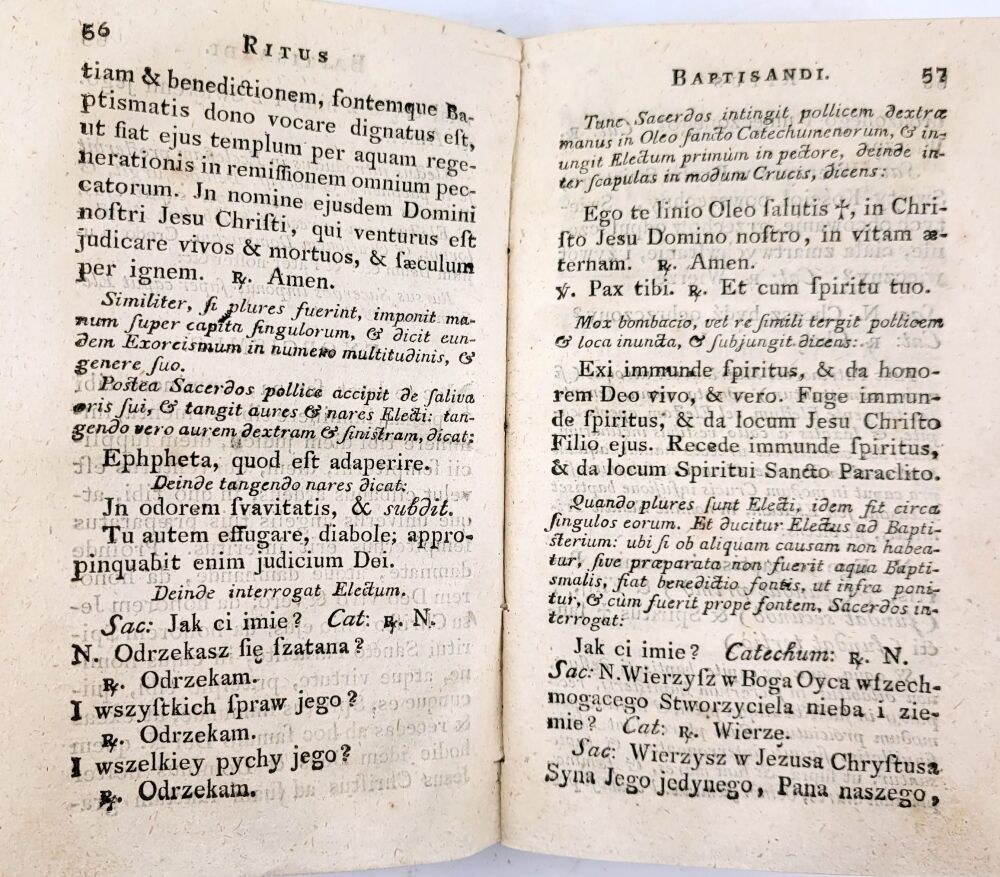 56
RITUS
tiam & benedictionem, fontemque Ba-
ptismatis dono vocare dignatus eſt,
ut fiat ejus templum per aquam rege-
nerationis in remiſſionem omnium pec-
catorum. Jn nomine ejusdem Domini
noſtri Jesu Chriſti, qui venturus eſt
judicare vivos & mortuos, & ſæculum
per ignem. ℟. Amen.
Similiter, ſi plures fuerint, imponit ma-
num ſuper capita ſingulorum, & dicit eun-
dem Exorcismum in numero multitudinis, &
genere ſuo.
Poſtea Sacerdos pollice accipit de ſaliva
oris ſui, & tangit aures & nares Electi: tan-
gendo vero aurem dextram & ſiniſtram, dicat:
Ephpheta, quod eſt adaperire.
Deinde tangendo nares dicat:
Jn odorem ſvavitatis, & subdit.
Tu autem effugare, diabole; appro-
pinquabit enim judicium Dei.
Deinde interrogat Electum.
Sac: Jak ci imie? Cat: ℟. N.
N. Odrzekasz ſię ſzatana?
℟. Odrzekam.
I wszyſtkich ſpraw jego?
℟. Odrzekam.
I wszelkiey pychy jego?
℟. Odrzekam.
BAPTISANDI.
57
Tunc Sacerdos intingit pollicem dextræ
manus in Oleo ſancto Catechumenorum, & in-
ungit Electum primùm in pectore, deinde in-
ter ſcapulas in modum Crucis, dicens:
Ego te linio Oleo ſalutis ✝, in Chri-
ſto Jesu Domino noſtro, in vitam æ-
ternam. ℟. Amen.
℣. Pax tibi. ℟. Et cum ſpiritu tuo.
Mox bombacio, vel re ſimili tergit pollicem
& loca inuncta, & ſubjungit dicens:
Exi immunde ſpiritus, & da hono-
rem Deo vivo, & vero. Fuge immun-
de ſpiritus, & da locum Jesu Chriſto
Filio ejus. Recede immunde ſpiritus,
& da locum Spiritui Sancto Paraclito.
Quando plures ſunt Electi, idem fit circa
ſingulos eorum. Et ducitur Electus ad Bapti-
ſterium: ubi ſi ob aliquam causam non habea-
tur, ſive præparata non fuerit aqua Bapti-
smalis, fiat benedictio fontis, ut infra poni-
tur, & cùm fuerit prope fontem, Sacerdos in-
terrogat:
Jak ci imie? Catechum: ℟. N.
Sac: N. Wierzyſz w Boga Oyca wſzech-
mogącego Stworzyciela nieba i zie-
mie? Cat: ℟. Wierzę.
Sac: Wierzysz w Jezusa Chryſtusa
Syna Jego jedynego, Pana naszego,